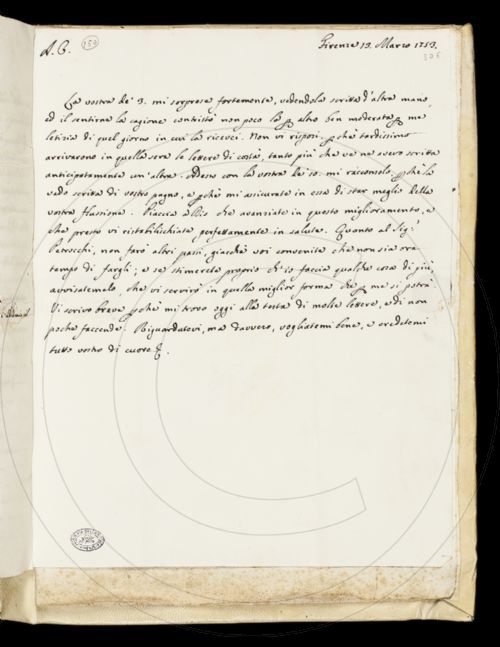 A. C. 150 Firenze 13. Marzo 1753.
La vostra de' 3. mi sorprese fortemente, vedendola scritta d'altra mano,
ed il sentirne la cagione contristò non poco la altro ben moderata
letizia di quel giorno in cui la ricevei. Non vi risposi, pchè tardissimo
arrivarono in quella sera le lettere di costà, tanto più che ve ne avevo scritta
anticipatamente un'altra. Adesso con la vostra de' 10. mi racconsolo, pchè la
vedo scritta di vostro pugno, e pchè mi assicurate in essa di star meglio della
vostra flussione. Piaccia a Dio che avanziate in questo miglioramento, e
che presto vi ristabilischiate perfettamente in salute. Quanto al Sig.
Petroschi, non farò altri passi, giacchè voi convenite che non sia ora
tempo di fargli; e se stimerete proprio ch'io faccia qualche cosa di più,
avvisatemelo, che vi servirò in quella miglior forma che p me si potrà.
Vi scrivo breve pchè mi trovo oggi alla testa di molte lettere, e di non
poche faccende. Riguardatevi, ma davvero, vogliatemi bene, e credetemi
tutto vostro di cuore